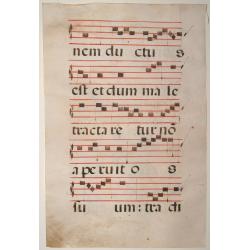 nem du ctus
est et dum ma le
tracta re tur nō
a pe ru it o s
su um: tra di